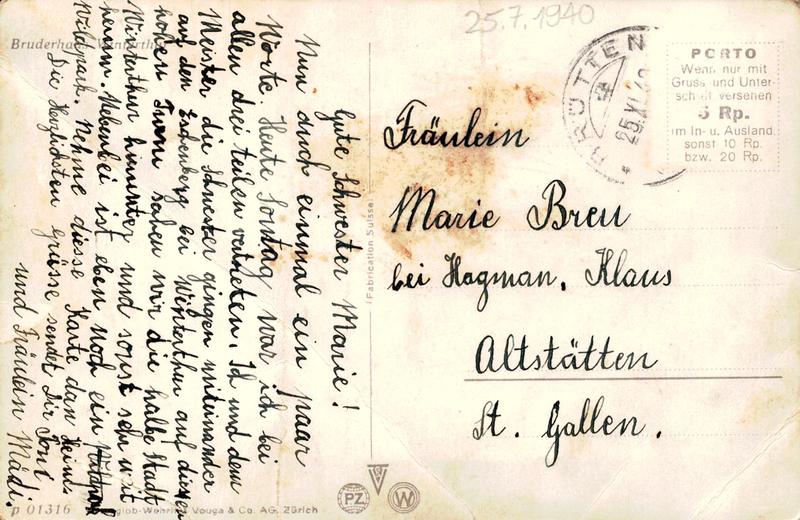 25.7.1940
Bruderhaus Winterthur
Gute Schwester Marie!
Nun auch einmal ein paar
Worte. Heute Sontag war ich bei
allen drei teilen vertreten. Ich und dem
Meister die Schwester gingen miteinander
auf den bei Winterthur auf diesen
hohen Turm sahen wir die halbe Stadt
Winterthur hinunter und sonst sehr weit
herum. Nebenbei ist eben noch ein
Wildpark. Nehme diesse Karte dan Heim.
Die Herzlichsten grüsse sendet Dir Toni
und Fräulein Mädi.
p 01316
Vouga & Co. AG. Zürich
Fabrication Suisse
PZ
W
BRÜTTEN
PORTO
Wenn nur mit
Gruss und Unter-
schrift versehen
5 Rp.
im In- u. Ausland
sonst 10 Rp.
bzw. 20 Rp.
Fräulein
Marie Breu
bei Hagman, Klaus
Altstätten
St. Gallen.